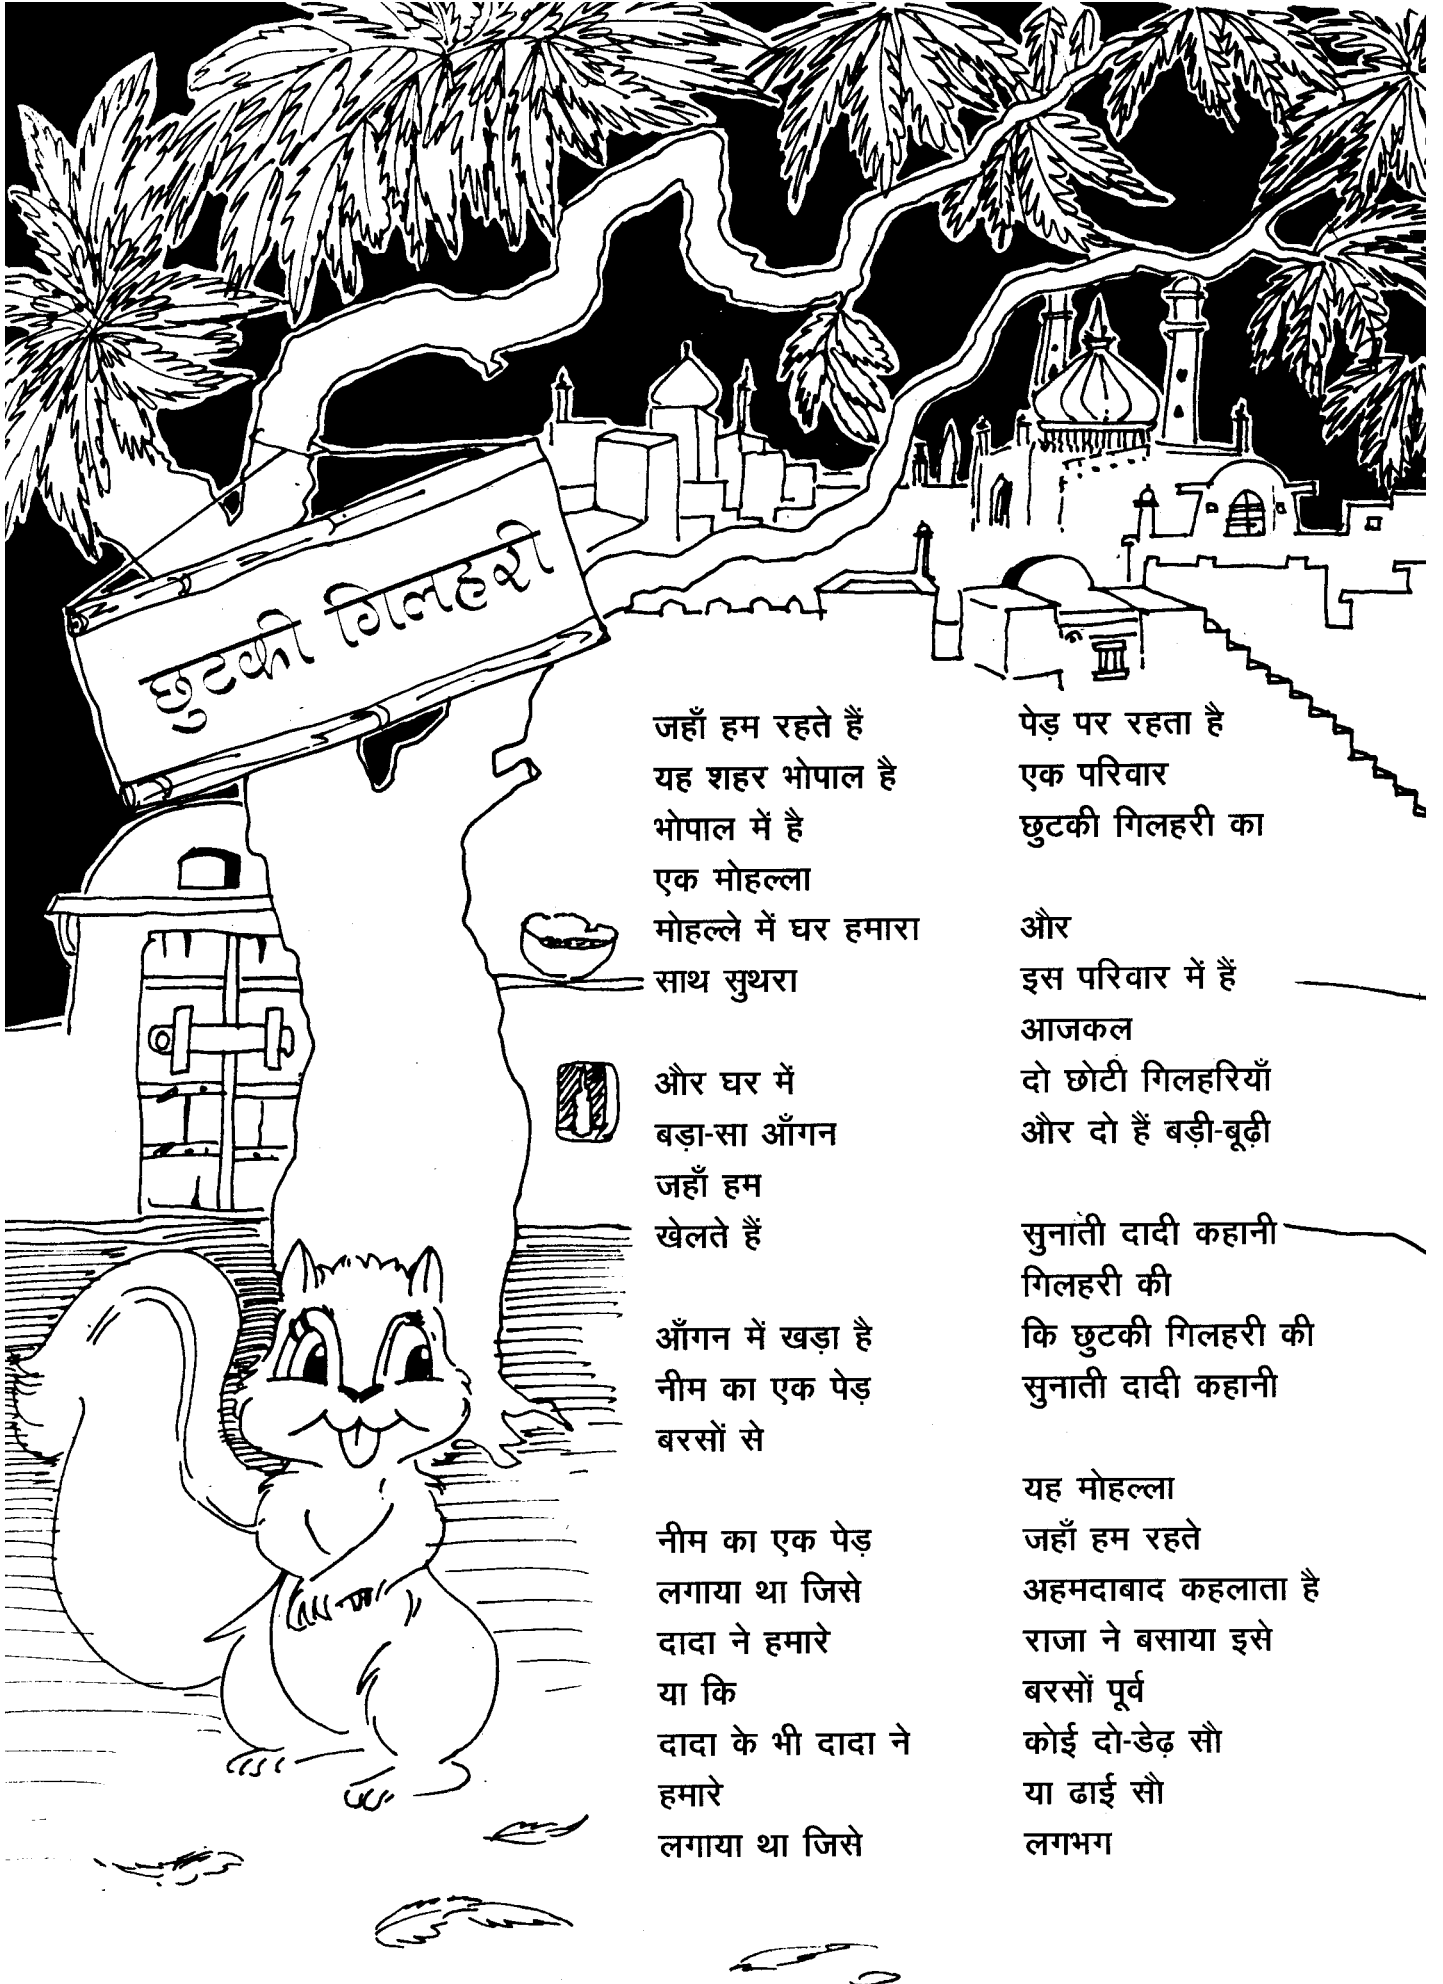 छुटकी गिलहरी
जहाँ हम रहते हैं
यह शहर भोपाल है
भोपाल में है
एक मोहल्ला
मोहल्ले में घर हमारा
साथ सुथरा

और घर में
बड़ा-सा आँगन
जहाँ हम
खेलते हैं

आँगन में खड़ा है
नीम का एक पेड़
बरसों से

नीम का एक पेड़
लगाया था जिसे
दादा ने हमारे
या कि
दादा के भी दादा ने
हमारे
लगाया था जिसे

पेड़ पर रहता है
एक परिवार
छुटकी गिलहरी का

और
इस परिवार में हैं
आजकल
दो छोटी गिलहरियाँ
और दो हैं बड़ी-बूढ़ी

सुनाती दादी कहानी
गिलहरी की
कि छुटकी गिलहरी की
सुनाती दादी कहानी

यह मोहल्ला
जहाँ हम रहते
अहमदाबाद कहलाता है
राजा ने बसाया इसे
बरसों पूर्व
कोई दो-डेढ़ सौ
या ढाई सौ
लगभग